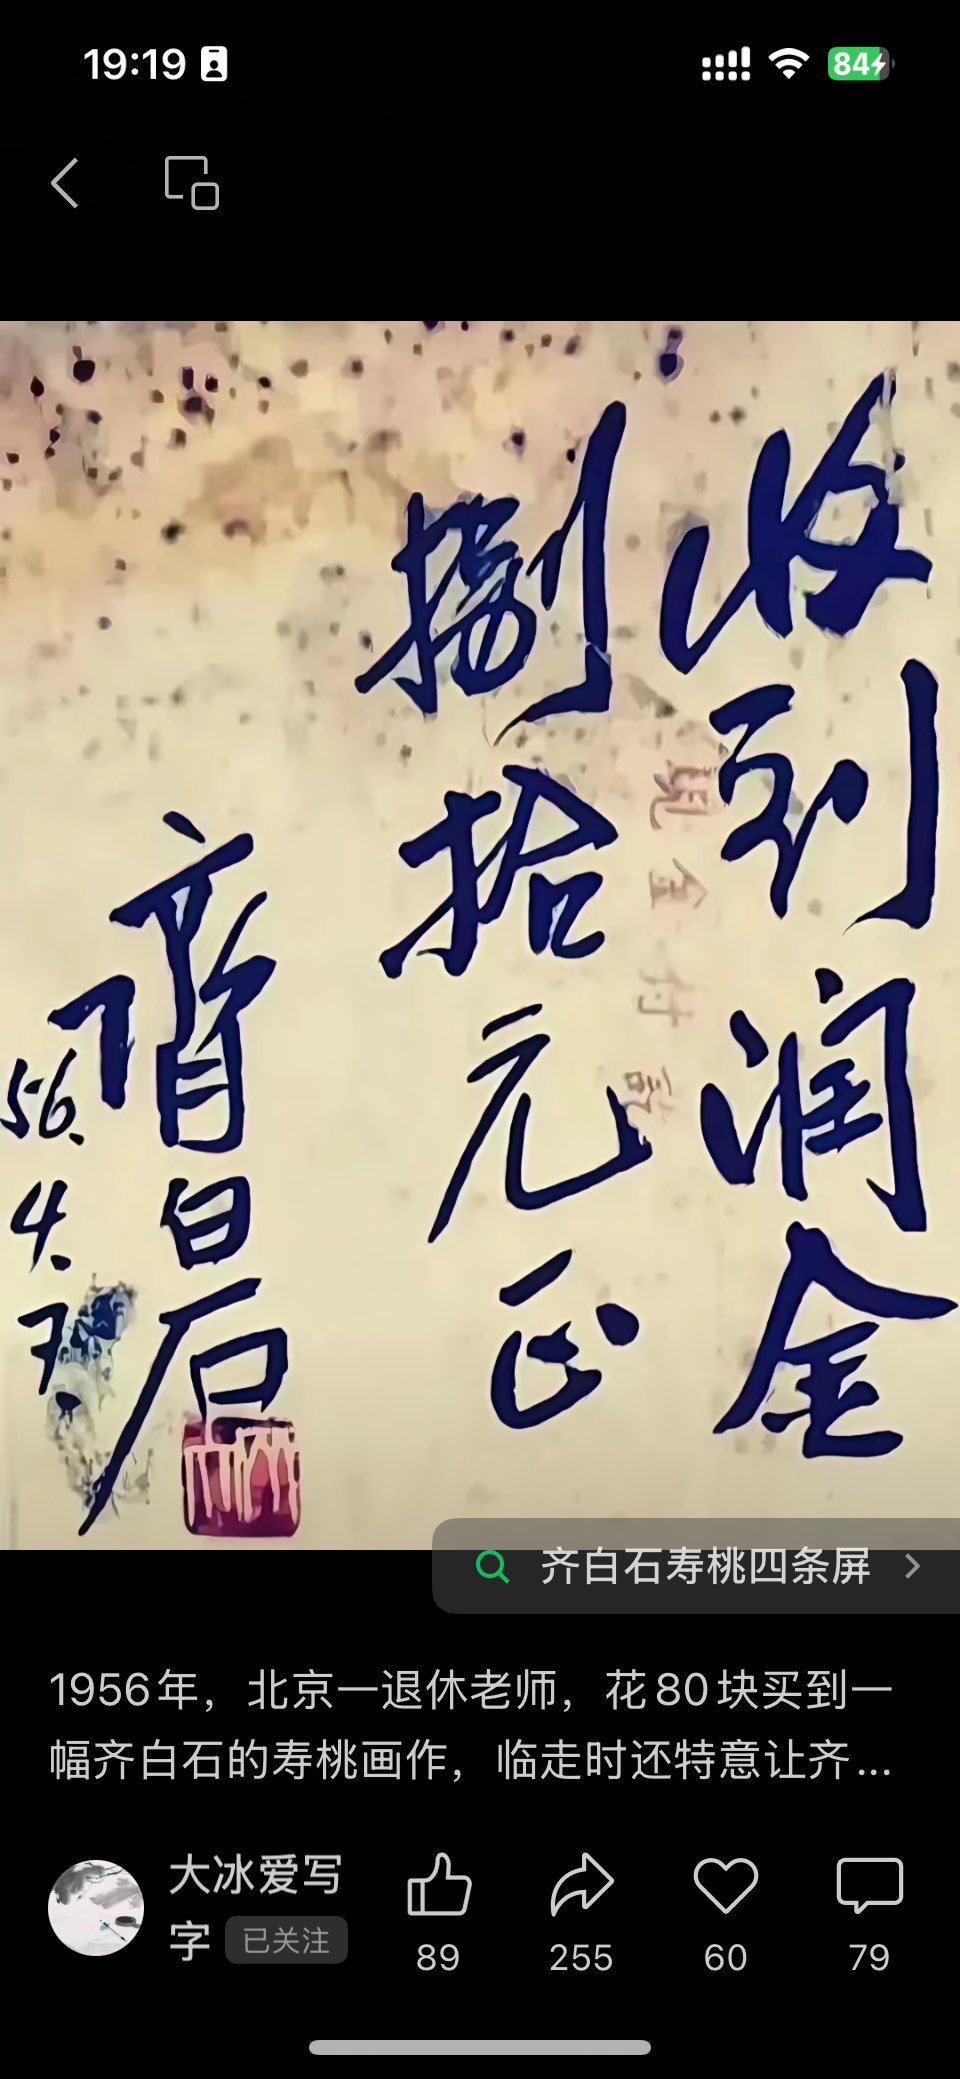 19:19
84
收到润金
捌拾元正
齊白石
56.4.7.
现金付讫
齐白石寿桃四条屏
1956年，北京一退休老师，花80块买到一
幅齐白石的寿桃画作，临走时还特意让齐...
大冰爱写
字 已关注
89 255 60 79